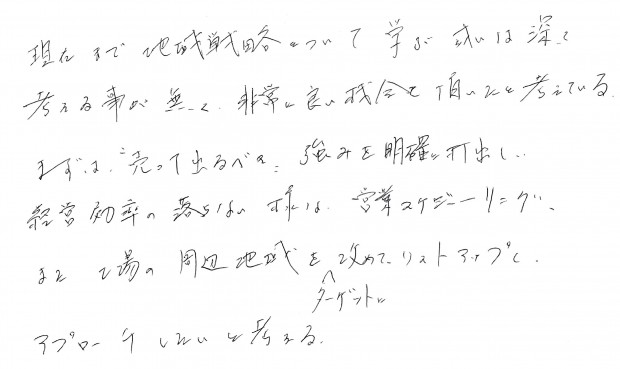 現在まで地域戦略について学ぶ或いは深く
考える事が無く、非常に良い機会を頂いたと考えている。
まずは、"売って出るべき"強みを明確に打出し、
経営効率の落ちない様な営業スケジューリング、
また工場の周辺地域を改めてリストアップし、
ターゲットに
アプローチしたいと考える。